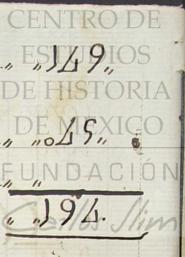 CENTRO DE
ESTUDIOS
„ „149„
DE HISTORIA
DE MÉXICO
„ „045„
FUNDACIÓN
„ „
Carlos Slim
„ „194.